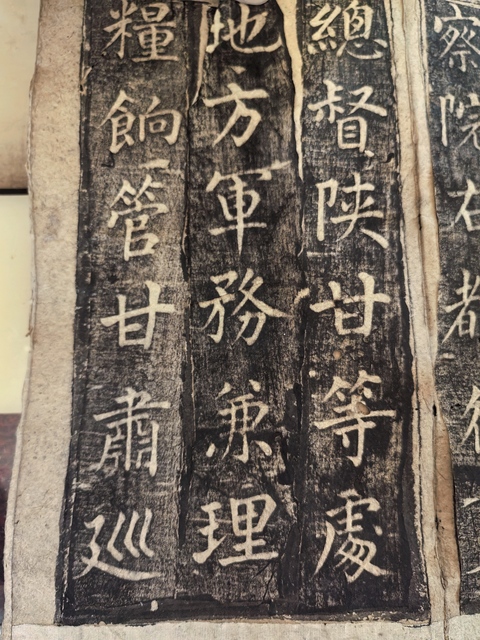 察院右都
總督陝甘等處
地方軍務兼理
糧餉管甘肅巡